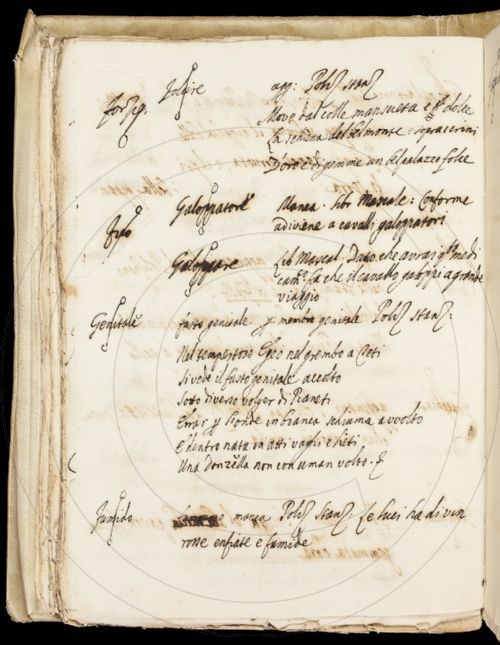 agg: Poliz Stanz
Move dal colle mansueta e dolce
La schiena del bel monte, e sopra i crini
D'oro e di gemme un bel palazzo folce
Galoppatore manca. libr Mascale: Conforme
adiviene a cavalli galoppatori
Galoppare Lib Mascal. Dato che avrai
che il cavallo galoppi a grande
viaggio
Genitale fusto genitale membro genitale Poliz Stanz:
Nel tempestoso Egeo nel grembo a Teti
Si vede il fusto genitale accolto
Sotto diverso volger di Pianeti
Errar l'onde in bianca schiuma avvolto
E dentro nata in atti vaghi e lieti
Una donzella non con uman volto.
Fumido manca Poliz Stanz: Le luci ha di vin
rosse enfiate e fumide